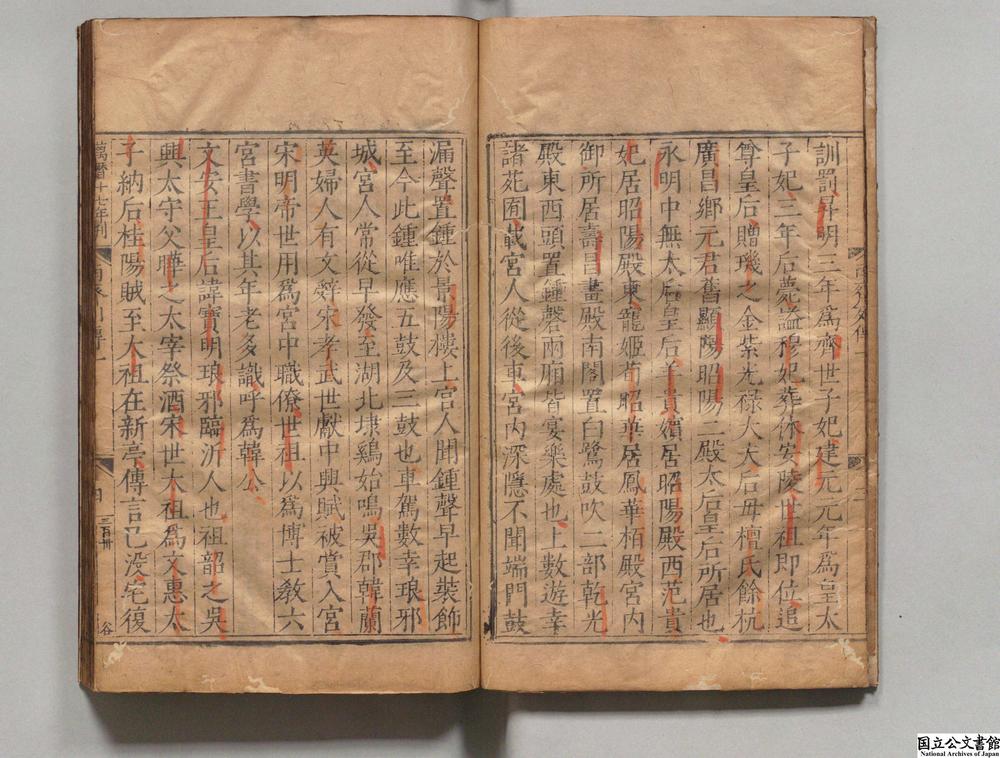 訓罰昇明三年為齊世子妃建元元年為皇太
子妃三年后薨謚穆妃葬休安陵世祖即位追
尊皇后贈璣之金紫光禄大夫后母檀氏餘杭
廣昌鄉元君舊顯陽昭陽二殿太后皇后所居也
永明中無太后皇后羊貴嬪居昭陽殿西范貴
妃居昭陽殿東寵姬荀昭華居鳳華栢殿宮内
御所居壽昌畫殿南閣置白鷺鼓吹二部乾光
殿東西頭置鍾磬兩廂皆宴樂處也上數遊幸
諸苑囿載宮人從後車宮内深隱不聞端門鼓
漏聲置鍾於景陽樓上宮人聞鍾聲早起裝飾
至今此鍾唯應五鼓及三鼓也車駕數幸琅邪
城宮人常從早發至湖北埭鷄始鳴吳郡韓蘭
英婦人有文辭宋孝武世獻中興賦被賞入宮
宋明帝世用爲宮中職僚世祖以爲博士敎六
宮書學以其年老多識呼爲韓公
文安王皇后諱寶明琅邪臨沂人也祖韶之吳
興太守父曄之太宰祭酒宋世太祖爲文惠太
子納后桂陽賊至太祖在新亭傳言已没宅復
萬曆十七年刊
四
三百卅
谷
国立公文書館
National Archives of Japan